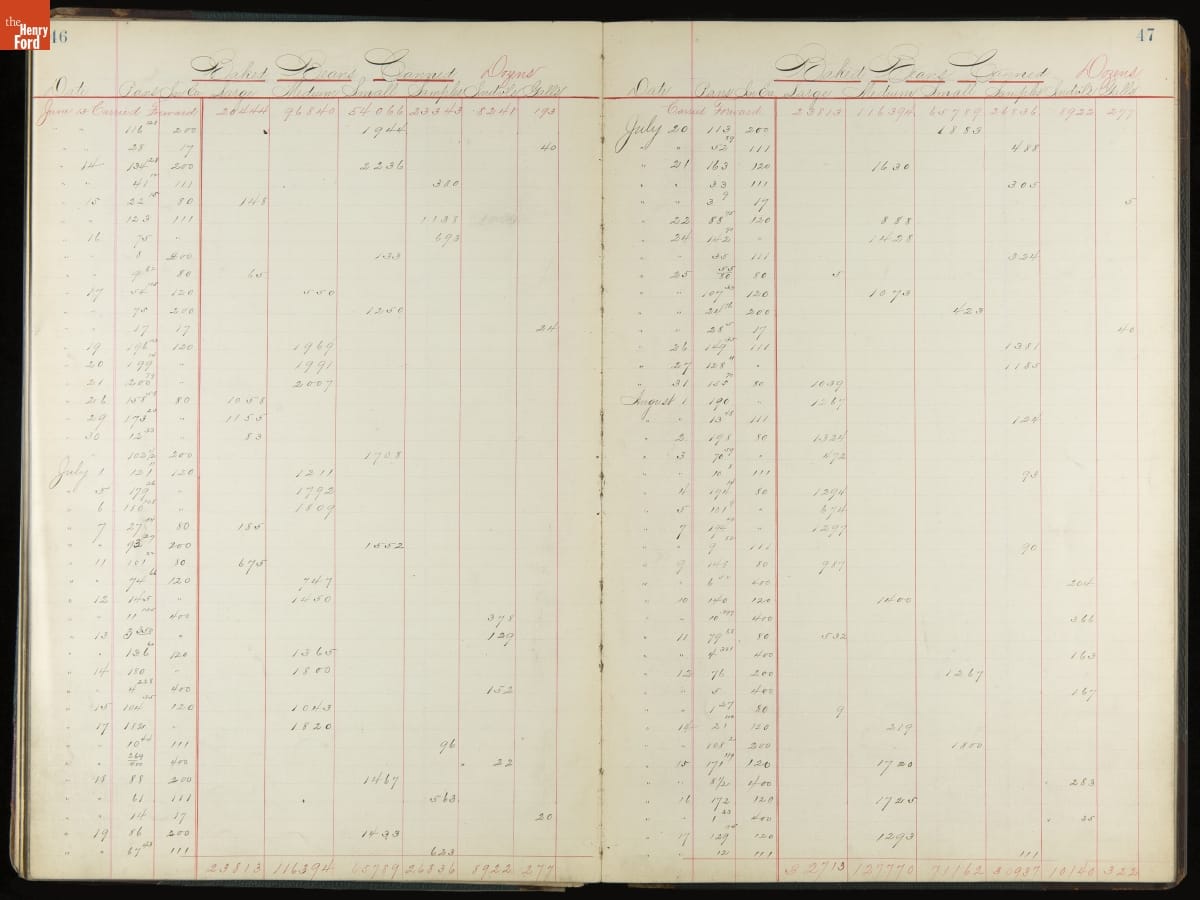 the Henry Ford
46
Baked Beans Canned Dozens
Date Pans In Ca Large Medium Small Simplx Indiv'l Gall's
June 13 Carried Forward 20444 96840 54066 23343 8241 193
" " 116 200 1944
" " 28 17 40
" 14 134 200 2236
" " 41 111 380
" 15 22 80 148
" " 123 111 1138
" 16 75 " 693
" " 8 200 133
" " 9 80 65
" 17 54 120 550
" " 75 200 1250
" " 17 17 24
" 19 196 120 1969
" 20 199 " 1991
" 21 200 " 2007
" 26 158 80 1058
" 29 173 " 1155
" 30 12 " 83
102 1/2 200 1708
July 1 121 120 1211
" 5 179 " 1792
" 6 180 " 1809
" 7 27 80 185
" " 93 200 1552
" 11 101 80 675
" " 74 120 747
" 12 145 " 1450
" " 11 400 378
" 13 3 " 129
" " 136 120 1365
" 14 180 " 1800
" " 4 400 152
" 15 104 120 1043
" 17 182 " 1820
" " 10 111 96
" " 264/400 400 22
" 18 88 200 1467
" " 61 111 563
" " 14 17 20
" 19 86 200 1433
" " 67 111 623
23813 116394 65789 26836 8922 277
47
Baked Beans Canned Dozens
Date Pans In Ca Large Medium Small Simplx Indiv'l Gall's
Carried Forward 23813 116394 65789 26836 8922 277
July 20 113 200 1883
" " 52 111 488
" 21 163 120 1630
" " 33 111 305
" " 3 17 5
" 22 88 120 888
" 24 142 " 1428
" " 35 111 324
" 25 55/80 80 5
" " 107 120 1073
" " 24 200 423
" " 28 17 40
" 26 149 111 1381
" 27 128 " 1185
" 31 155 80 1039
August 1 190 " 1267
" " 13 111 124
" 2 198 80 1324
" 3 70 " 472
" " 10 111 93
" 4 194 80 1294
" 5 101 " 674
" 7 194 " 1297
" " 9 111 90
" 9 148 80 987
" " 6 400 204
" 10 140 120 1400
" " 10 400 366
" 11 79 80 532
" " 4 400 163
" 12 76 200 1267
" " 5 400 167
" " 1 80 9
" 14 21 120 219
" " 108 200 1800
" 15 171 120 1720
" " 8 1/2 400 283
" 16 172 120 1725
" " 1 400 35
" 17 129 120 1293
" " 12 111 111
32713 127770 71162 30937 10140 322